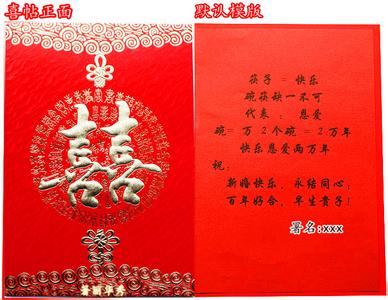 喜帖正面
默认模版
囍
喜丽华秀
筷子 = 快乐
碗筷缺一不可
代表：恩爱
碗= 万 2个碗 = 2万年
快乐恩爱两万年
祝：
新婚快乐，永结同心；
百年好合，早生贵子！
署名:xxx